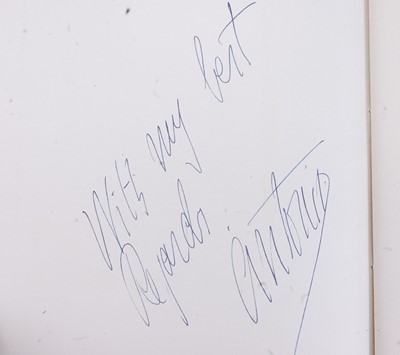 With my best
Regards.
Antonio